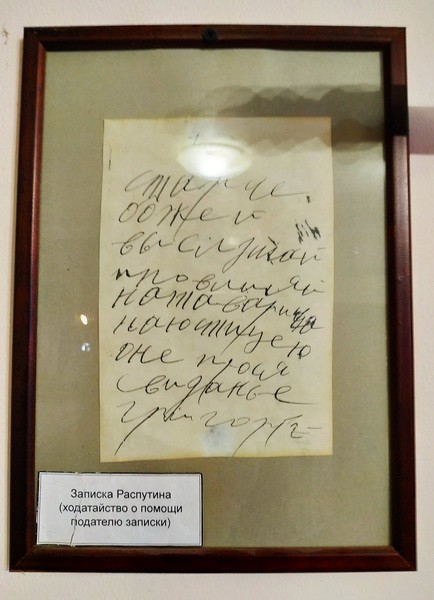 старче
божей
выслушай
про влияй
на таварища
на юстицею
оне прося
свиданье
григорье
Записка Распутина
(ходатайство о помощи
подателю записки)